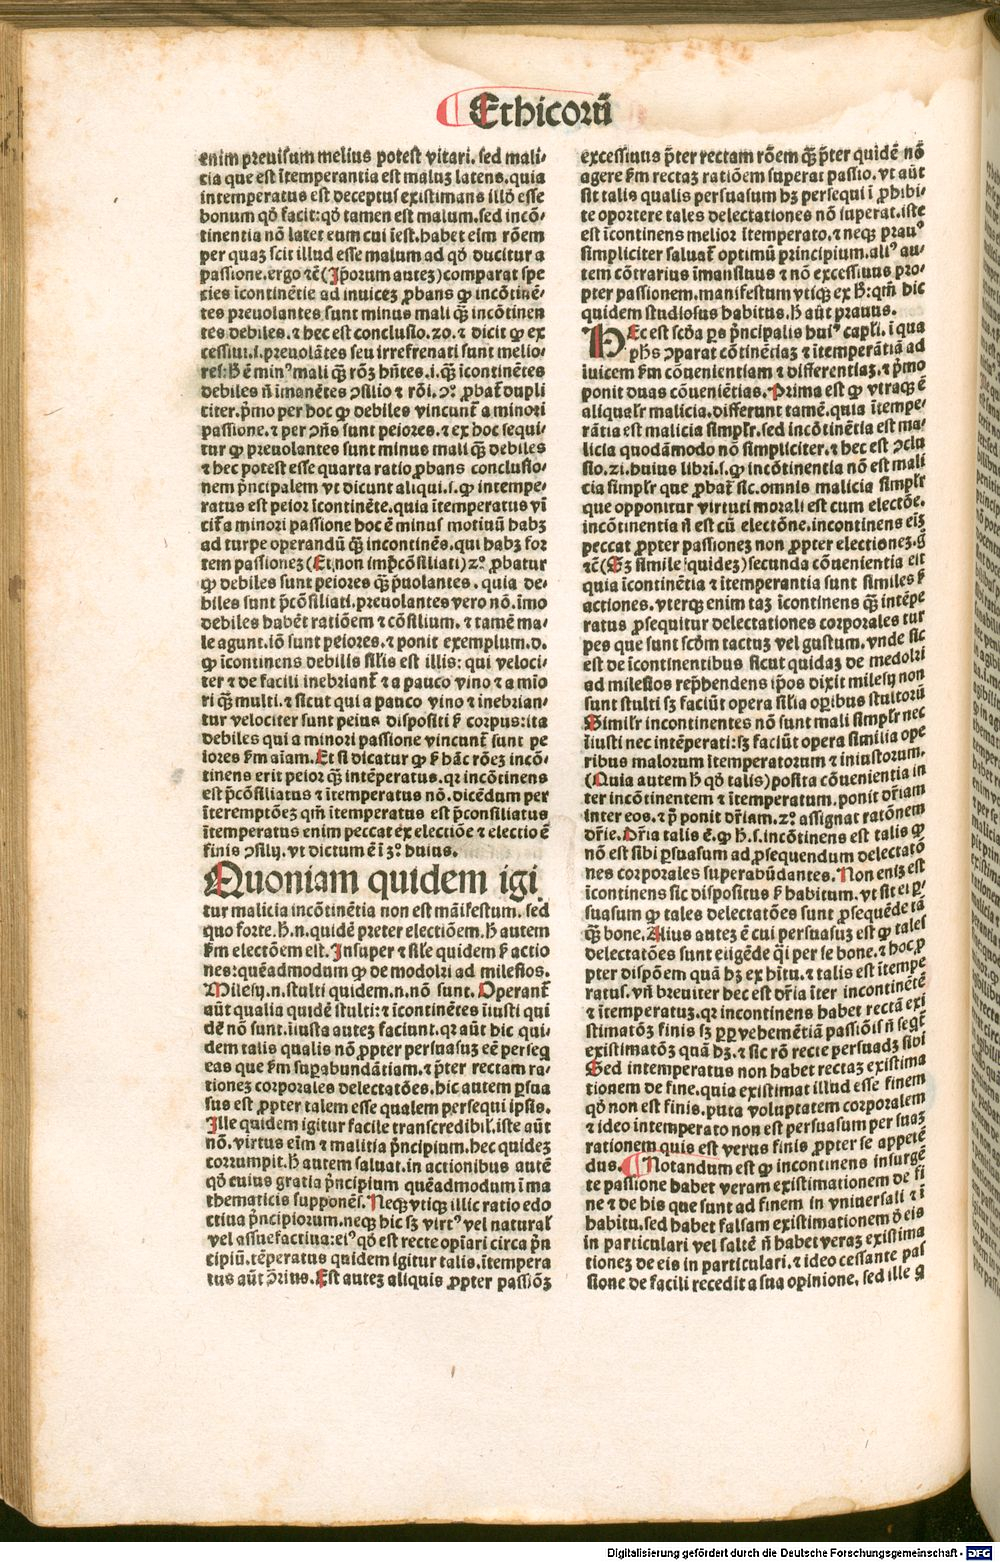 Ethicorũ
enim preuisum melius potest vitari. sed mali-
cia que est ĩtemperantia est maluȝ latens. quia
intemperatus est deceptus existimans illđ esse
bonum qđ facit: qđ tamen est malum. sed incõ-
tinentia nõ latet eum cui ĩest. habet eĩm rõem
per quaȝ scit illud esse malum ad qđ ducitur a
passione. ergo ⁊c̃ (Ip̃orum auteȝ) comparat spe
cies ĩcontinẽtie ad inuiceȝ ꝓbans ꝙ incõtinẽ-
tes preuolantes sunt minus mali qȝ̃ incõtinen
tes debiles. ⁊ hec est conclusio. 20. ⁊ dicit ꝙ ex
cessiui. i. preuolãtes seu irrefrenati sunt melio-
res: ħ ẽ minꝰ mali qȝ̃ rõȝ hñtes. i. qȝ̃ ĩcontinẽtes
debiles ñ ĩmanẽtes ꝯsilio ⁊ rõi. ꝯꝰ ꝓbat̃ dupli
citer. p̃mo per hoc ꝙ debiles vincunt̃ a minori
passione. ⁊ per ꝯñs sunt peiores. ⁊ ex hoc sequi-
tur ꝙ preuolantes sunt minus mali qȝ̃ debiles
⁊ hec potest esse quarta ratio ꝓbans conclusio-
nem p̃ncipalem vt dicunt aliqui. s. ꝙ intempe-
ratus est peior ĩcontinẽte. quia ĩtemperatus vĩ
cit̃ a minori passione hoc ẽ minus motiuũ habȝ
ad turpe operandũ qȝ̃ incontinẽs. qui habȝ for
tem passioneȝ (Et non imp̃cõsiliati) 2ꝰ ꝓbatur
ꝙ debiles sunt peiores qȝ̃ p̃uolantes. quia de-
biles sunt p̃cõsiliati. preuolantes vero nõ. ĩmo
debiles habẽt ratiõem ⁊ cõsilium. ⁊ tamẽ ma-
le agunt. iõ sunt peiores. ⁊ ponit exemplum. d.
ꝙ ĩcontinens debilis sil̃is est illis: qui veloci-
ter ⁊ de facili inebriant̃ ⁊ a pauco vino ⁊ a mĩo
ri qȝ̃ multi. ⁊ sicut qui a pauco vino ⁊ inebrian-
tur velociter sunt peius dispositi ẜ corpus: ita
debiles qui a minori passione vincunt̃ sunt pe
iores ẜm aĩam. Et si dicatur ꝙ ẜ hãc rõeȝ incõ-
tinens erit peior qȝ̃ intẽperatus. qr incõtinens
est p̃cõsiliatus ⁊ ĩtemperatus nõ. dicẽdum per
ĩteremptõeȝ qm̃ ĩtemperatus est p̃consiliatus
ĩtemperatus enim peccat ex electiõe ⁊ electio ẽ
finis ꝯsilij. vt dictum ẽ ĩ 3ꝰ huius.
Quoniam quidem igi
tur malicia incõtinẽtia non est mãifestum. sed
quo forte. ħ. n. quidẽ preter electiõem. ħ autem
ẜm electõem est. Insuper ⁊ sil̃e quidem ẜ actio
nes: quẽadmodum ꝙ de modolɀi ad milesios.
Milesij. n. stulti quidem. n. nõ sunt. Operant̃
aũt qualia quidẽ stulti: ⁊ ĩcontinẽtes ĩiusti qui
dẽ nõ sunt. ĩiusta auteȝ faciunt. qr aũt hic qui-
dem talis qualis nõ ꝓpter persuasuȝ eẽ perseq
eas que ẜm suꝑabundãtiam. ⁊ p̃ter rectam ra-
tioneȝ corporales delectatões. hic autem ꝑsua
sus est ꝓpter talem esse qualem persequi ipsis.
Ille quidem igitur facile transcredibil̃. iste aũt
nõ. virtus eĩm ⁊ malitia p̃ncipium. hec quideȝ
corrumpit. ħ autem saluat. in actionibus autẽ
qđ cuius gratia p̃ncipium quẽadmodum ĩ ma
thematicis supponẽs. Neqȝ vtiqȝ illic ratio edo
ctiua p̃ncipiorum. neqȝ hic sȝ virtꝰ vel natural̃
vel assuefactiua: eiꝰ qđ est recte opĩari circa p̃n
cipiũ. tẽperatus quidem igitur talis. ĩtempera
tus aũt ꝯ̃rius. Est auteȝ aliquis ꝓpter passiõȝ
excessiuus p̃ter rectam rõem qȝ̃ p̃ter quidẽ nõ
agere ẜm rectaȝ ratiõem superat passio. vt aũt
sit talis qualis persuasum hȝ persequi ĩ ꝓhibi-
te oportere tales delectationes nõ superat. iste
est ĩcontinens melior ĩtemperato. ⁊ neqȝ prauꝰ
simpliciter saluat̃ optimũ principium. aliꝰ au-
tem cõtrarius ĩmansiuus ⁊ nõ excessiuus pro-
pter passionem. manifestum vtiqȝ ex ħ: qm̃ hic
quidem studiosus habitus. ħ aũt prauus.
HEc est scđa ps p̃ncipalis huiꝰ capl̃i. ĩ qua
ph̃s ꝯparat cõtinẽtiaȝ ⁊ ĩtemperãtiã ad
inuicem ẜm cõuenientiam ⁊ differentiaȝ. ⁊ p̃mo
ponit duas cõueniẽtias. Prima est ꝙ vtraqȝ ẽ
aliqualr̃ malicia. differunt tamẽ. quia ĩtempe-
rãtia est malicia simpl̃r. sed incõtinẽtia est ma-
licia quodãmodo nõ simpliciter. ⁊ hec est ꝯclu
sio. 21. huius libri. s. ꝙ incõtinentia nõ est mali
cia simpl̃r que ꝓbat̃ sic. omnis malicia simpl̃r
que opponitur virtuti morali est cum electõe.
incõtinentia ñ est cũ electõne. incontinens eĩȝ
peccat ꝓpter passioneȝ non ꝓpter electioneȝ. g̊
⁊c̃ (Sȝ simile quideȝ) secunda cõuenientia est
quia ĩcontinẽtia ⁊ ĩtemperantia sunt similes ẜ
actiones. vterqȝ enim taȝ ĩcontinens qȝ̃ intẽpe
ratus ꝓsequitur delectationes corporales tur
pes que sunt scđm tactuȝ vel gustum. vnde sic
est de ĩcontinentibus sicut quidaȝ de medolɀi
ad milesios rep̃hendens ip̃os dixit milesij non
sunt stulti sȝ faciũt opera sil̃ia oꝑibus stultorũ
Similr̃ incontinentes nõ sunt mali simpl̃r nec
ĩiusti nec intẽperati: sȝ faciũt opera similia ope
ribus malorum ĩtemperatorum ⁊ iniustorum.
(Quia autem ħ qđ talis) posita cõuenientia in
ter incõtinentem ⁊ ĩtemperatum. ponit dr̃iam
inter eos. ⁊ p̃ ponit dr̃iam. 2ꝰ assignat ratõnem
dr̃ie. Dr̃ia talis ẽ. ꝙ ħ. s. incõtinens est talis ꝙ
nõ est sibi ꝑsuasum ad ꝓsequendum delectatõ
nes corporales superabũdantes. Non eniȝ est
ĩcontinens sic dispositus ẜ habitum. vt sit ei ꝑ-
suasum ꝙ tales delectatões sunt ꝓsequẽde tã
qȝ̃ bone. Alius auteȝ ẽ cui persuasuȝ est ꝙ tales
delectatões sunt eligẽde q̃i per se bone. ⁊ hoc ꝓ
pter dispõem quã hȝ ex hĩtu. ⁊ talis est ĩtempe
ratus. vñ breuiter hec est dr̃ia ĩter incontinẽtẽ
⁊ ĩtemperatuȝ. qr incontinens habet rectã exi
stimatõȝ finis sȝ ꝓꝑ vehemẽtiã passiõis ñ seqt̃
existimatõȝ quã hȝ. ⁊ sic rõ recte persuadȝ sibi
Sed intemperatus non habet rectaȝ existima
tionem de fine. quia existimat illud esse finem
qđ non est finis. puta voluptatem corporalem
⁊ ideo intemperato non est persuasum per suaȝ
rationem quis est verus finis ꝓpter se appetẽ
dus. Notandum est ꝙ incontinens insurgẽ
te passione habet veram existimationem de fi
ne ⁊ de his que sunt ad finem in vniuersali ⁊ ĩ
habitu. sed habet falsam existimationem đ eis
in particulari vel saltẽ ñ habet veraȝ existima
tioneȝ de eis in particulari. ⁊ ideo cessante pas
sione de facili recedit a sua opinione. sed ille q
Digitalisierung gefördert durch die Deutsche Forschungsgemeinschaft - DFG